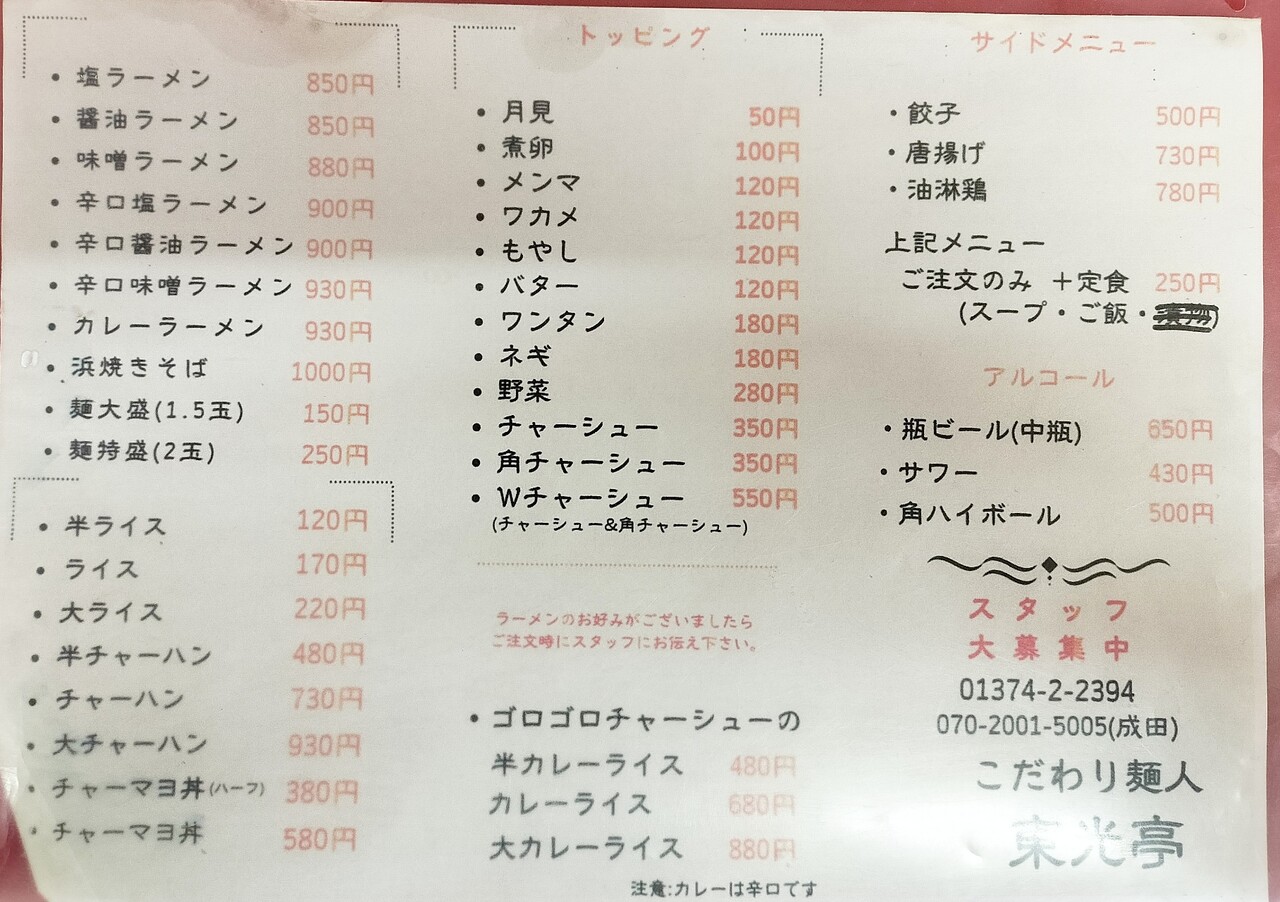 ・塩ラーメン 850円
・醤油ラーメン 850円
・味噌ラーメン 880円
・辛口塩ラーメン 900円
・辛口醤油ラーメン 900円
・辛口味噌ラーメン 930円
・カレーラーメン 930円
・浜焼きそば 1000円
・麺大盛(1.5玉) 150円
・麺特盛(2玉) 250円
・半ライス 120円
・ライス 170円
・大ライス 220円
・半チャーハン 480円
・チャーハン 730円
・大チャーハン 930円
・チャーマヨ丼(ハーフ) 380円
・チャーマヨ丼 580円
トッピング
・月見 50円
・煮卵 100円
・メンマ 120円
・ワカメ 120円
・もやし 120円
・バター 120円
・ワンタン 180円
・ネギ 180円
・野菜 280円
・チャーシュー 350円
・角チャーシュー 350円
・Wチャーシュー 550円
(チャーシュー&角チャーシュー)
ラーメンのお好みがございましたら
ご注文時にスタッフにお伝え下さい。
・ゴロゴロチャーシューの
半カレーライス 480円
カレーライス 680円
大カレーライス 880円
注意:カレーは辛口です
サイドメニュー
・餃子 500円
・唐揚げ 730円
・油淋鶏 780円
上記メニュー
ご注文のみ +定食 250円
(スープ・ご飯・)
アルコール
・瓶ビール(中瓶) 650円
・サワー 430円
・角ハイボール 500円
スタッフ
大募集中
01374-2-2394
070-2001-5005(成田)
こだわり麺人
東光亭